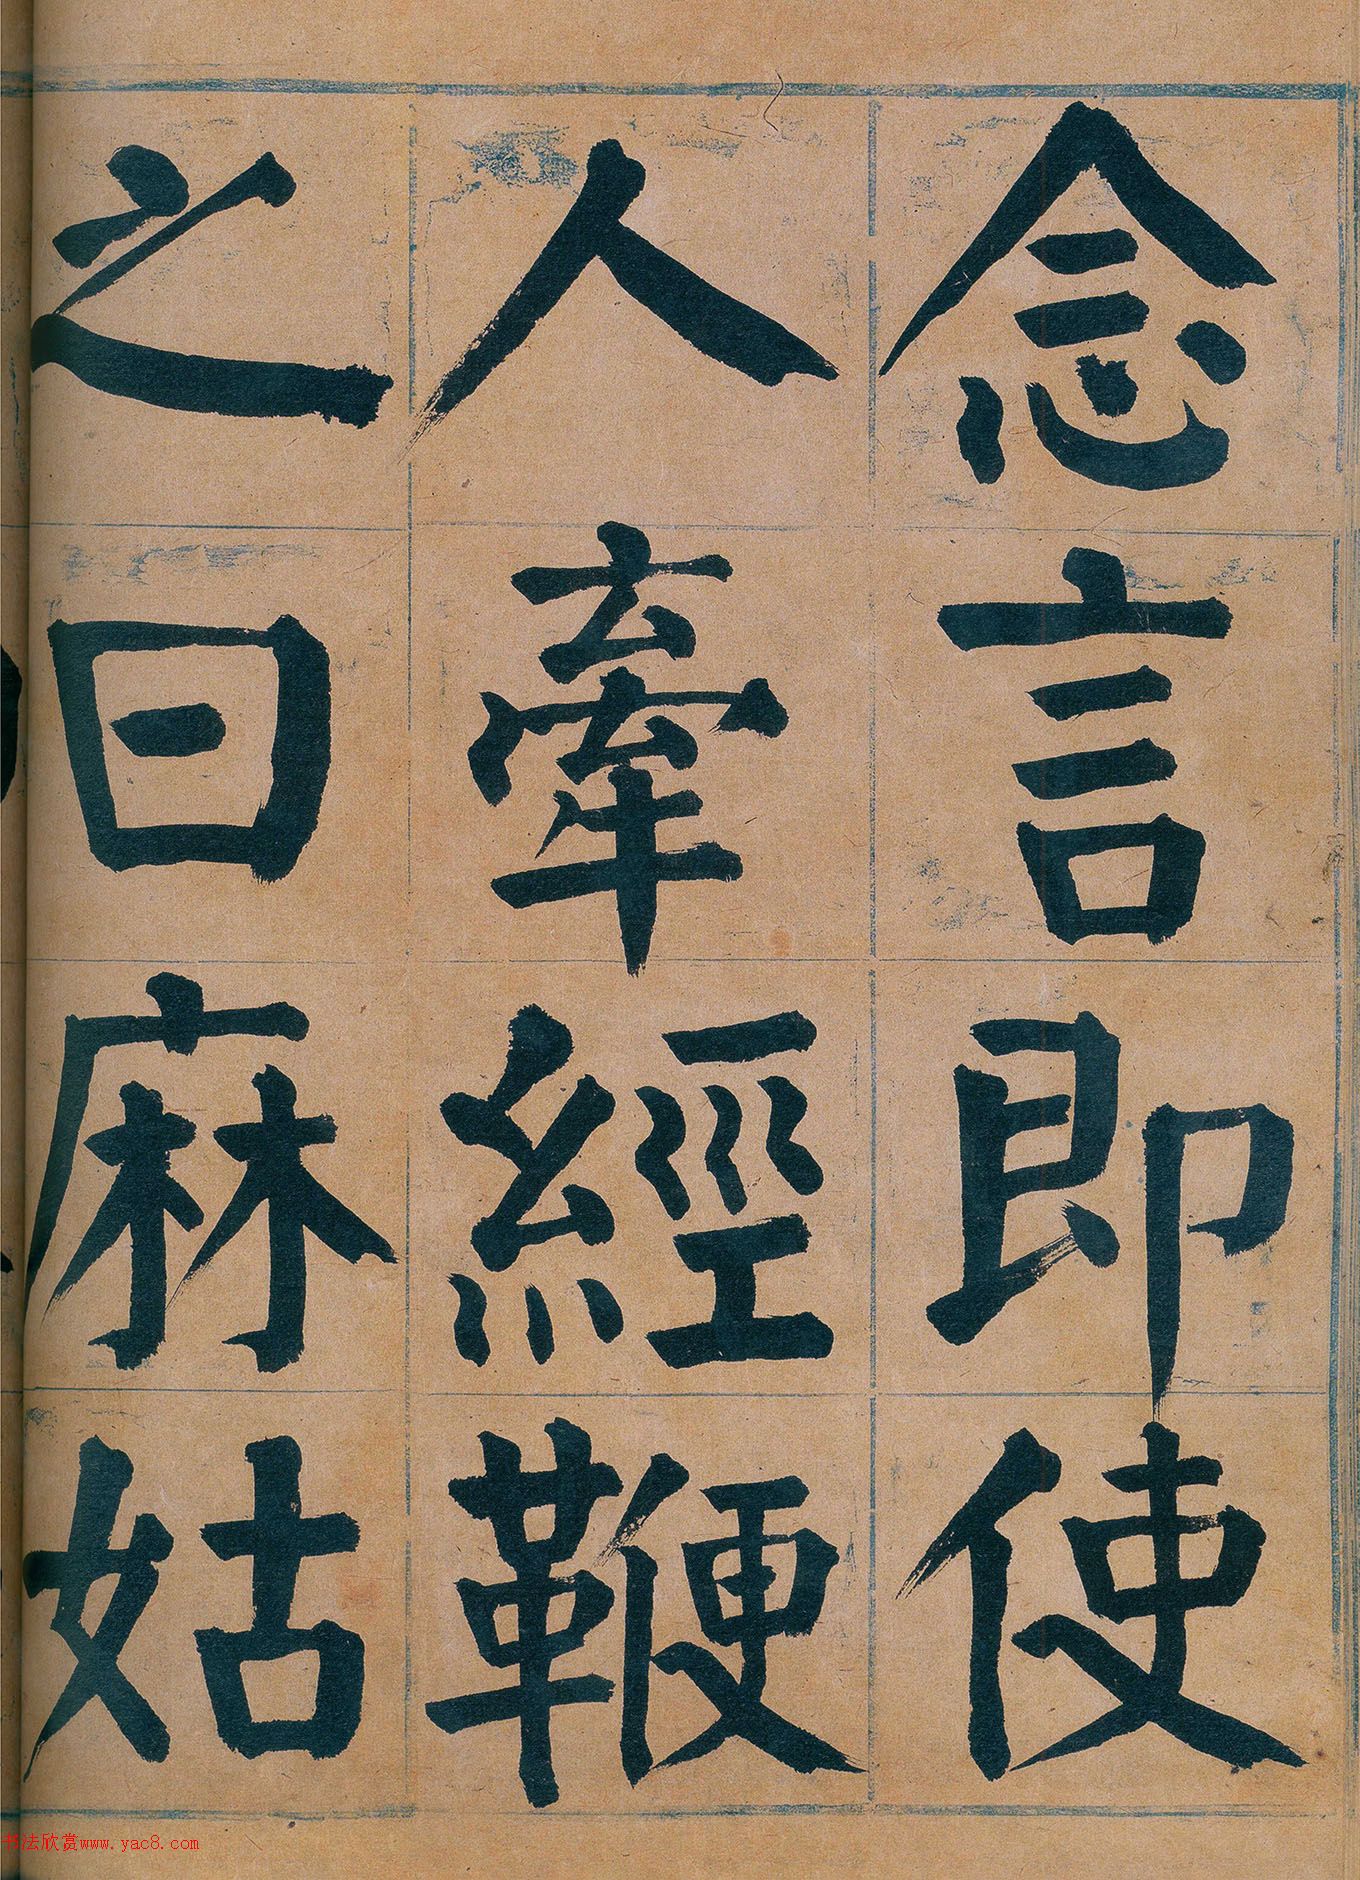 念言即使
人牽經鞭
之曰麻姑
书法欣赏www.yac8.com